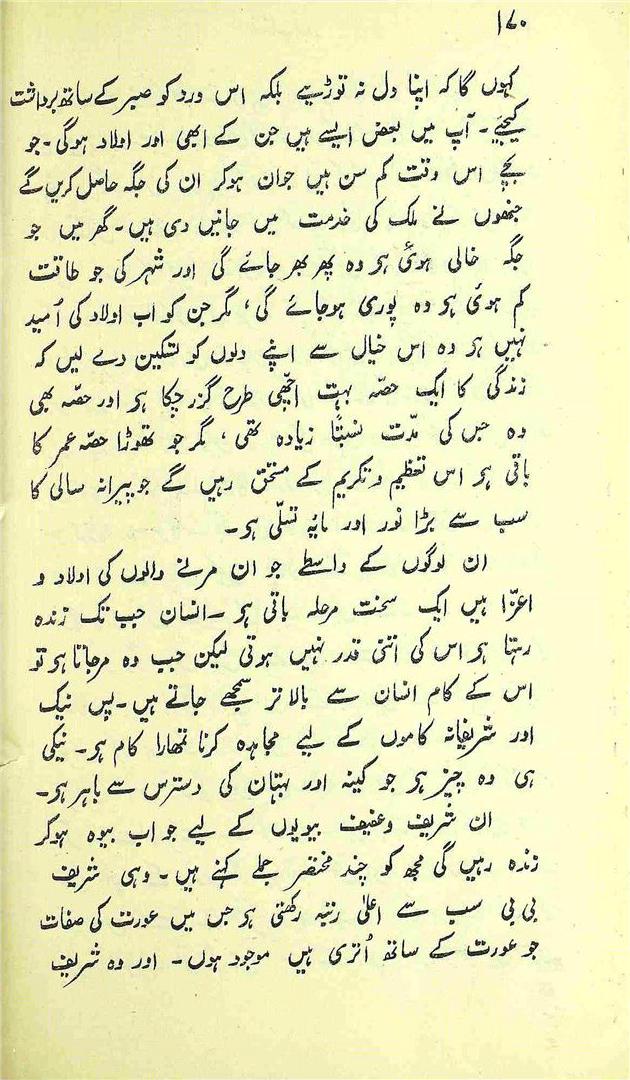 ۱۷۰
کہوں گا کہ اپنا دل نہ توڑیے بلکہ اس درد کو صبر کے ساتھ برداشت
کیجیے۔ آپ میں بعض ایسے ہیں جن کے ابھی اور اولاد ہوگی۔ جو
بچے اس وقت کم سن ہیں جوان ہوکر ان کی جگہ حاصل کریں گے
جنھوں نے ملک کی خدمت میں جانیں دی ہیں۔ گھر میں جو
جگہ خالی ہوئی ہو وہ پھر بھر جائے گی اور شہر کی جو طاقت
کم ہوئی ہو وہ پوری ہوجائے گی، مگر جن کو اب اولاد کی اُمید
نہیں ہو وہ اس خیال سے اپنے دلوں کو تسکین دے لیں کہ
زندگی کا ایک حصّہ بہت اچھی طرح گزر چکا ہو اور حصّہ بھی
وہ جس کی مدّت نسبتًا زیادہ تھی، مگر جو تھوڑا حصّہ عمر کا
باقی ہو اس تعظیم و تکریم کے مستحق رہیں گے جو پیرانہ سالی کا
سب سے بڑا نور اور مایۂ تسلّی ہو۔
ان لوگوں کے واسطے جو ان مرنے والوں کی اولاد و
اعزّا ہیں ایک سخت مرحلہ باقی ہو۔ انسان جب تک زندہ
رہتا ہو اس کی اتنی قدر نہیں ہوتی لیکن جب وہ مرجاتا ہو تو
اس کے کام انسان سے بالا تر سمجھے جاتے ہیں۔ پس نیک
اور شریفانہ کاموں کے لیے مجاہدہ کرنا تمھارا کام ہو۔ نیکی
ہی وہ چیز ہو جو کینہ اور بہتان کی دسترس سے باہر ہو۔
ان شریف و عفیف بیویوں کے لیے جو اب بیوہ ہوکر
زندہ رہیں گی مجھ کو چند مختصر جملے کہنے ہیں۔ وہی شریف
بی بی سب سے اعلیٰ رتبہ رکھتی ہو جس میں عورت کی صفات
جو عورت کے ساتھ اُتری ہیں موجود ہوں۔ اور وہ شریف